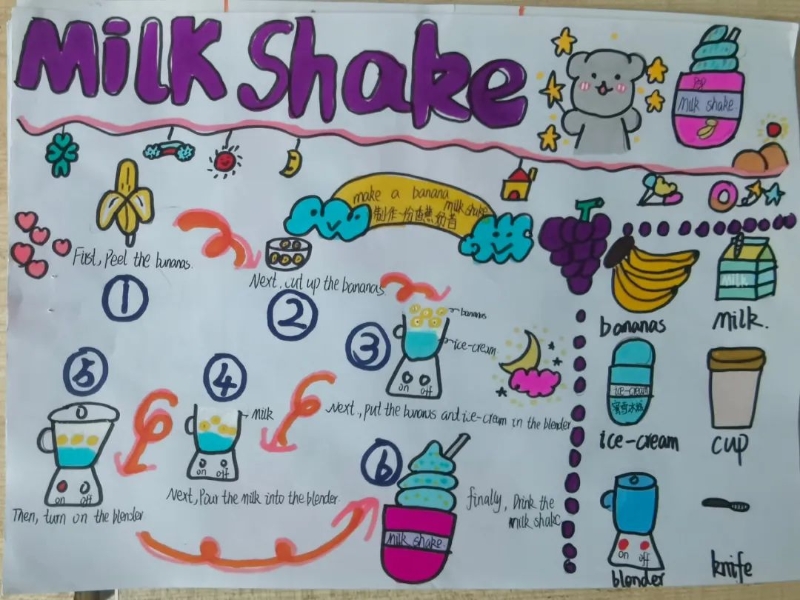 MiLK Shake
Pop
Milk shake
make a banana
milk shake
制作一份香蕉奶昔
First, Peel the bananas.
①
Next, cut up the bananas
②
③
bananas
ice-cream
on off
Next, put the bananas and ice-cream in the blender
④
Milk
on off
Next, Pour the milk into the blender.
⑤
on off
Then, turn on the blender
⑥
Milk shake
finally, Drink the
milk shake
bananas
MILK
milk.
ICE-CREAM
ice-cream
cup
on off
blender
knife